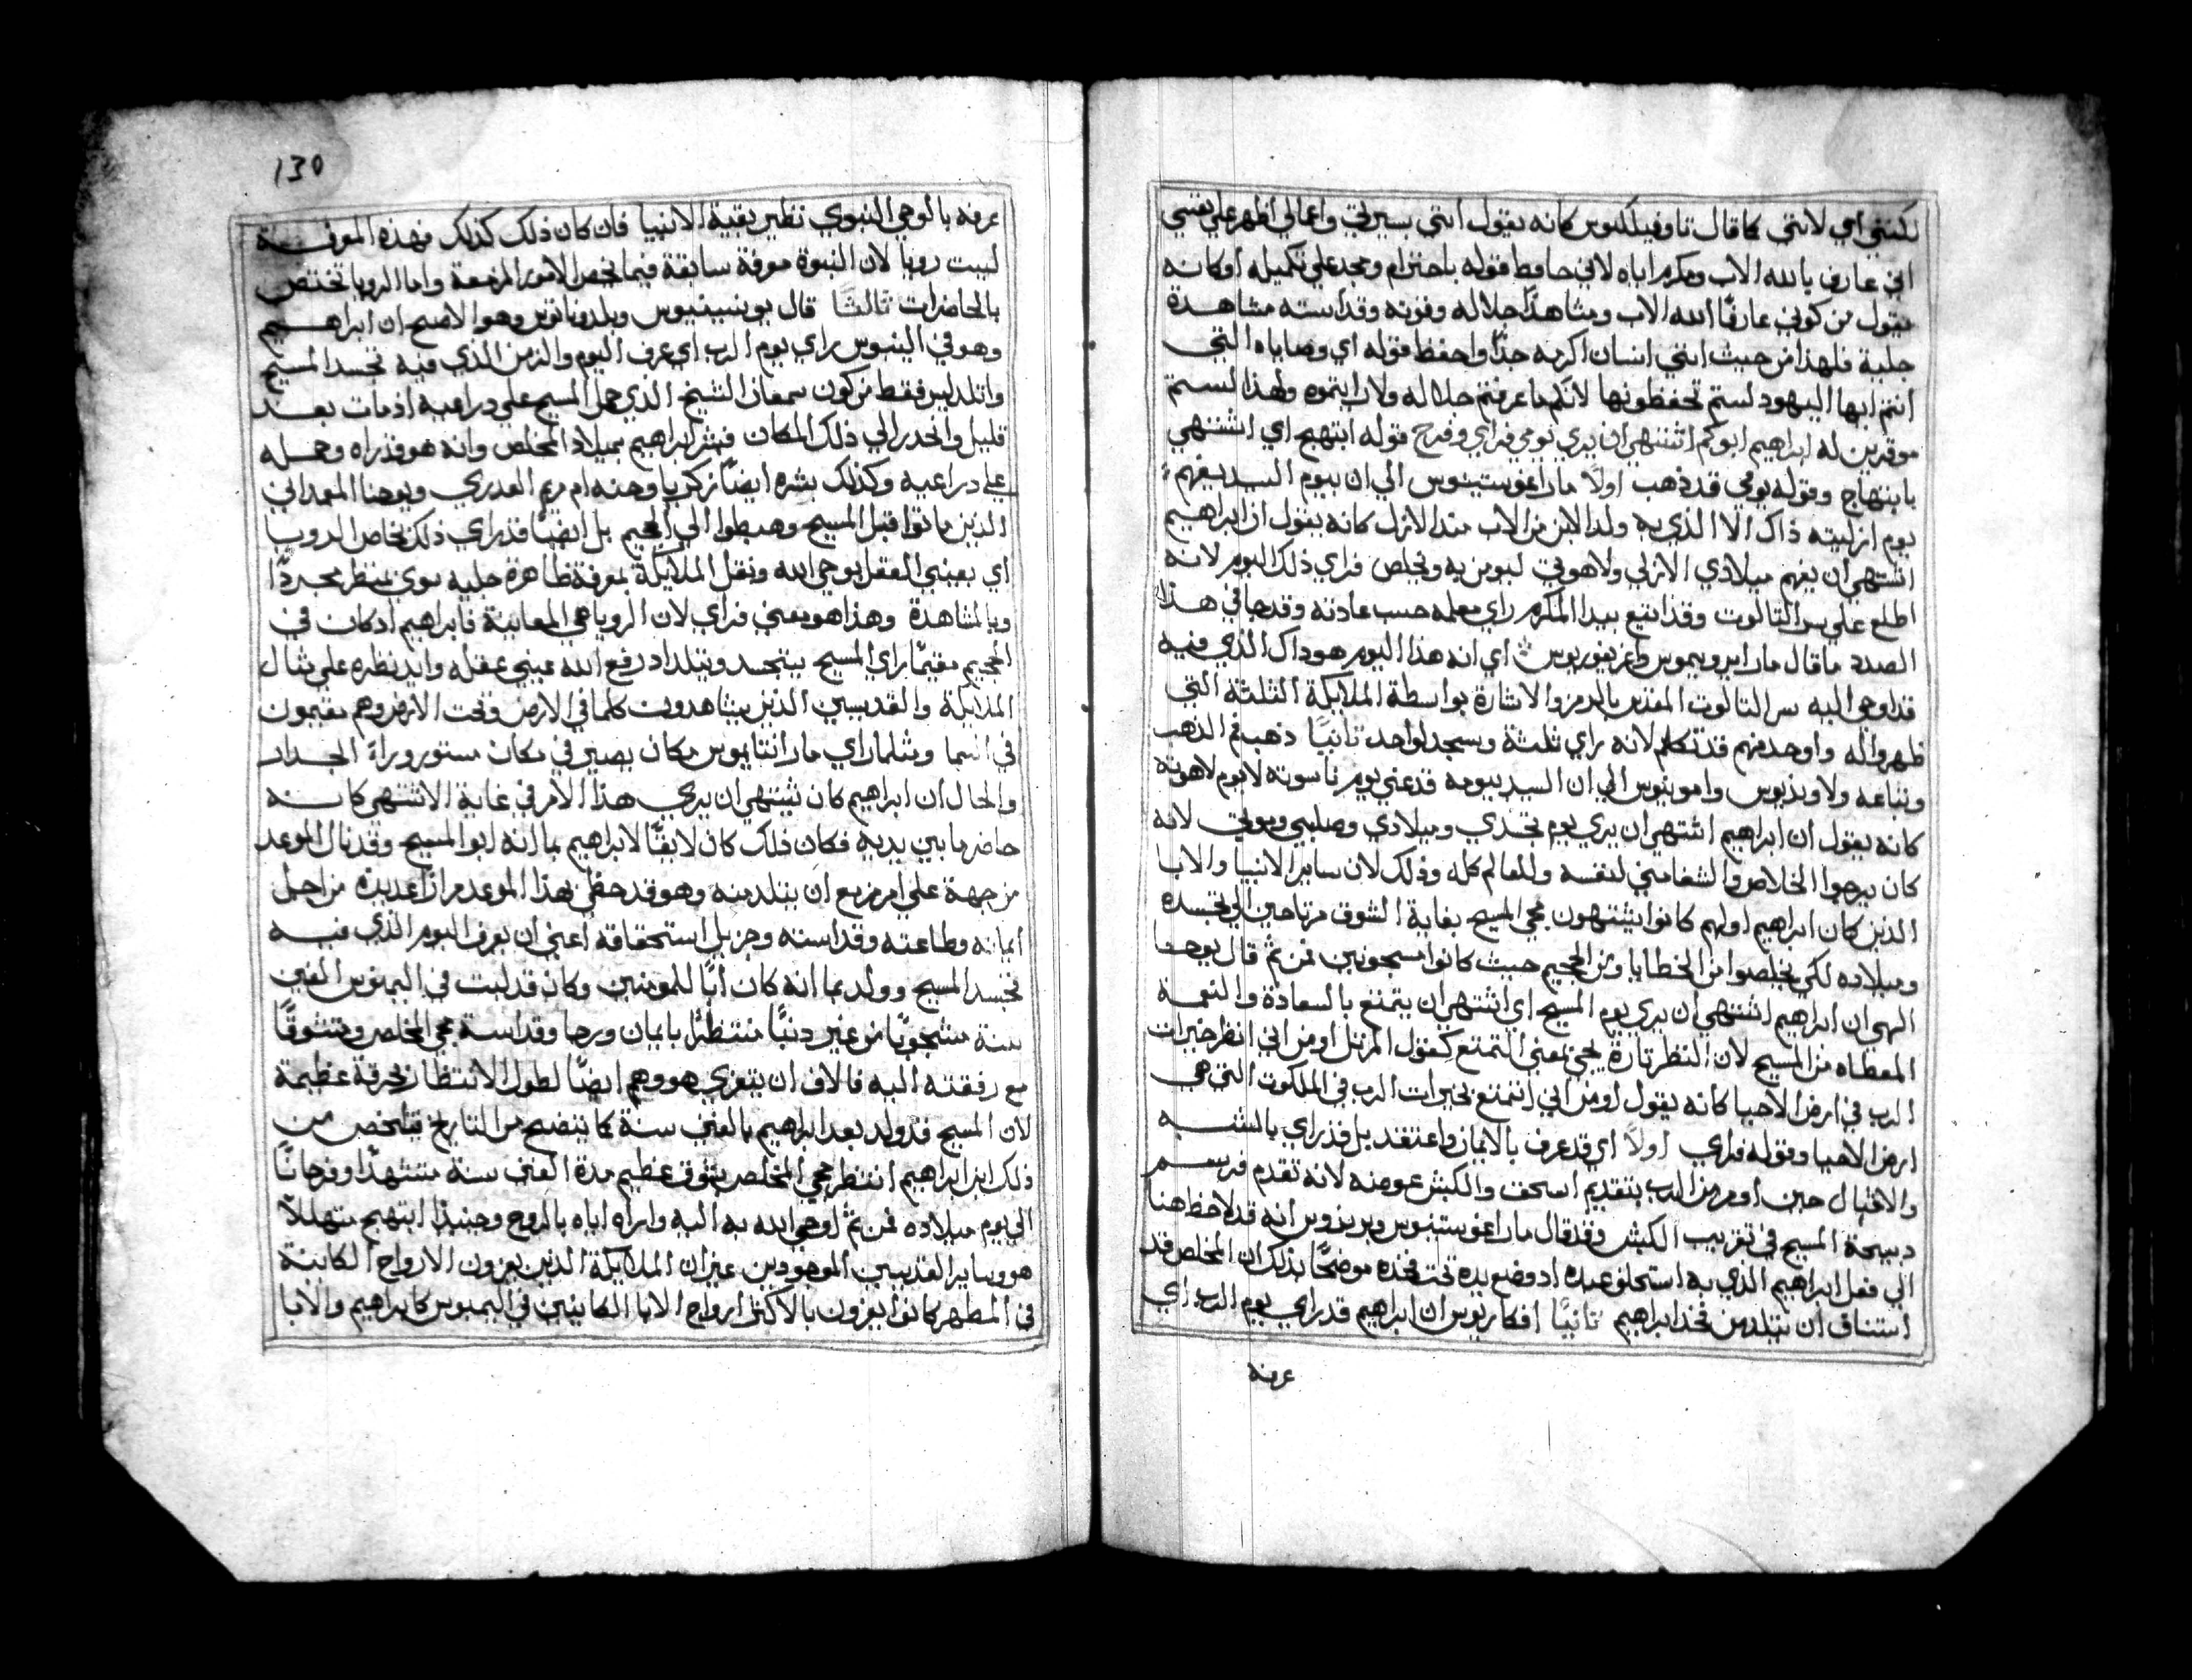 لكنني اعي لانني كما قال تاوفيلكتوس كانه يقول انني بسيرتي واعمالي اظهر علي نفسي
اني عارف بالله الاب ومكرم اياه لاني حافظ قوله باحترام ومجد علي تكميله او كانه
يقول من كوني عارفًا الله الاب ومشاهدًا جلاله وقوته وقداسته مشاهدة
جلية فلهذا من حيث انني انسان اكرمه جدًا واحفظ قوله اي وصاياه التي
انتم ايها اليهود لستم تحفظونها لانكم ما عرفتم جلاله ولا رايتموه ولهذا لستم
موقرين له ابراهيم ابوكم اشتهي ان يري يومي فراي وفرح قوله ابتهج اي اشتهي
بابتهاج وقوله يومي قد ذهب اولًا مار اغوستينوس الي ان بيوم السيد يفهم
يوم ازليته ذاك الا الذي به ولد الابن من الاب منذ الازل كانه يقول ان ابراهيم
اشتهي ان يفهم ميلادي الازلي ولاهوتي ليومن به ويخلص فراي ذلك اليوم لانه
اطلع علي سر التالوت وقد اتبع بيدا المكرم راي معلمه حسب عادته وقد جا في هذا
الصدد ما قال مار ايرونيموس واغريغوريوس اي انه هذا اليوم هو ذاك الذي فيه
قد اوحي اليه سر التالوت المقدس بالرمز والاشارة بواسطة الملايكة الثلثة التي
ظهروا له واوحد منهم قد تكلم لانه راي ثلثة وسجد لواحد تانيًا ذهب فم الذهب
وتباعه ولاونديوس وامونيوس الي ان السيد بيومه قد عني يوم ناسوته لا يوم لاهوته
كانه يقول ان ابراهيم اشتهي ان يري يوم تجسدي وميلادي وصلبي وموتي لانه
كان يرجوا الخلاص والشفا مني لنفسه وللعالم كله وذلك لان ساير الانبيا والابا
الذين كان ابراهيم اولهم كانوا يشتهون مجي المسيح بغاية الشوق مرتاحين الي تجسده
وميلاده لكي يخلصوا من الخطايا ومن الجحيم حيث كانوا مسجونين فمن ثم قال يوحنا
الهي ان ابراهيم اشتهي ان يري يوم المسيح اي اشتهي ان يتمتع بالسعادة والنعمة
المعطاه من المسيح لان النظر تارة يجي بمعني التمتع كقول المرتل اومن اني انظر خيرات
الرب في ارض الاحيا كانه يقول اومن اني اتمتع بخيرات الرب في الملكوت التي هي
ارض الاحيا وقوله فراي اولًا اي قد عرف بالايمان واعتقد بل قد راي بالشبه
والاخيال حين اومر من الرب بتقديم اسحق والكبش عوضه لانه تقدم فرسم
دبيحة المسيح في تقريب الكبش وقد قال مار اغوستينوس وبريزوس انه قد لاحظ هنا
الي فعل ابراهيم الذي به استحلف عبده اد وضع يده تحت فخذه موضحًا بذلك ان المخلص قد
استناف ان يتلد من فخذ ابراهيم تانيًا افكاريوس ان ابراهيم قد راي يوم الرب اي
عرفه
130
عرفه بالوحي النبوي نظير بقية الانبيا فان كان ذلك كذلك فهذه المعرفة
ليست رويا لان النبوة معرفة سابقة فيما يخص الامور المزمعة واما الرويا تختص
بالحاضرات تالتًا قال يونسينيوس وبلدوناتوس وهو الاصح ان ابراهيم
وهو في الينبوس راي يوم الرب اي عرف اليوم والزمن الذي فيه تجسد المسيح
واتلد ليس فقط من كون سمعان الشيخ الذي حمل المسيح علي دراعيه اذ مات بعد
قليل وانحدر الي ذلك المكان فبشر ابراهيم بميلاد المخلص وانه هو قد راه وحمله
علي دراعيه وكذلك بشره ايضًا زكريا وحنه ام مريم العدري ويوحنا المعمداني
الذين ماتوا قبل المسيح وهبطوا الي الجحيم بل ايضًا قد راي ذلك بخاص الرويا
اي بعيني العقل بوحي الله ونقل الملايكة بمعرفة ظاهرة جلية سوي بمنظر مجردًا
وبالمشاهدة وهذا هو معني فراي لان الرويا هي المعاينة فابراهيم اد كان في
الجحيم مقيمًا راي المسيح يتجسد ويتلد اد رفع الله عيني عقله وايد نظره علي مثال
الملايكة والقديسين الذين يشاهدون كلما في الارض وتحت الارض وهم مقيمون
في السما ومثلما راي مار انتانيوس مكان يصير في مكان مستور وراة الجدار
والحال ان ابراهيم كان يشتهي ان يري هذا الامر في غاية الاشتهي كانه
حاضر ما بين يديه فكان ذلك كان لايقًا لابراهيم بما انه ابو المسيح وقد نال الموعد
من جهة علي امر مزمع ان يتلد منه وهو قد حظي بهذا الموعد مرار عديدة من اجل
ايمانه وطاعته وقداسته وجزيل استحقاقه اعني ان يعرف اليوم الذي فيه
تجسد المسيح وولد بما انه كان ابًا للمومنين وكان قد لبت في اليمبوس الفين
سنة مسجونًا من غير دنبًا منتظرًا بايمان ورجا وقداسة مجي المخلص ومتشوقًا
مع رفقته اليه فالاق ان يتعزي هو وهم ايضًا لطول الانتظار بحرقة عظيمة
لان المسيح قد ولد بعد ابراهيم بالفين سنة كما يتضح من التاريخ فيلخص من
ذلك ان ابراهيم انتظر مجي المخلص بتوق عظيم مدة الفين سنة متشهدًا وفرحانًا
الي يوم ميلاده فمن ثم اوحي الله به اليه واراه اياه بالروح وحينيذ ابتهج متهللًا
هو وساير القديسين الموجودين غير ان الملايكة الذين يعزون الارواح الكاينة
في المطهر كانوا يعزون بالاكثر ارواح الابا الكاينين في اليمبوس كابراهيم والابا